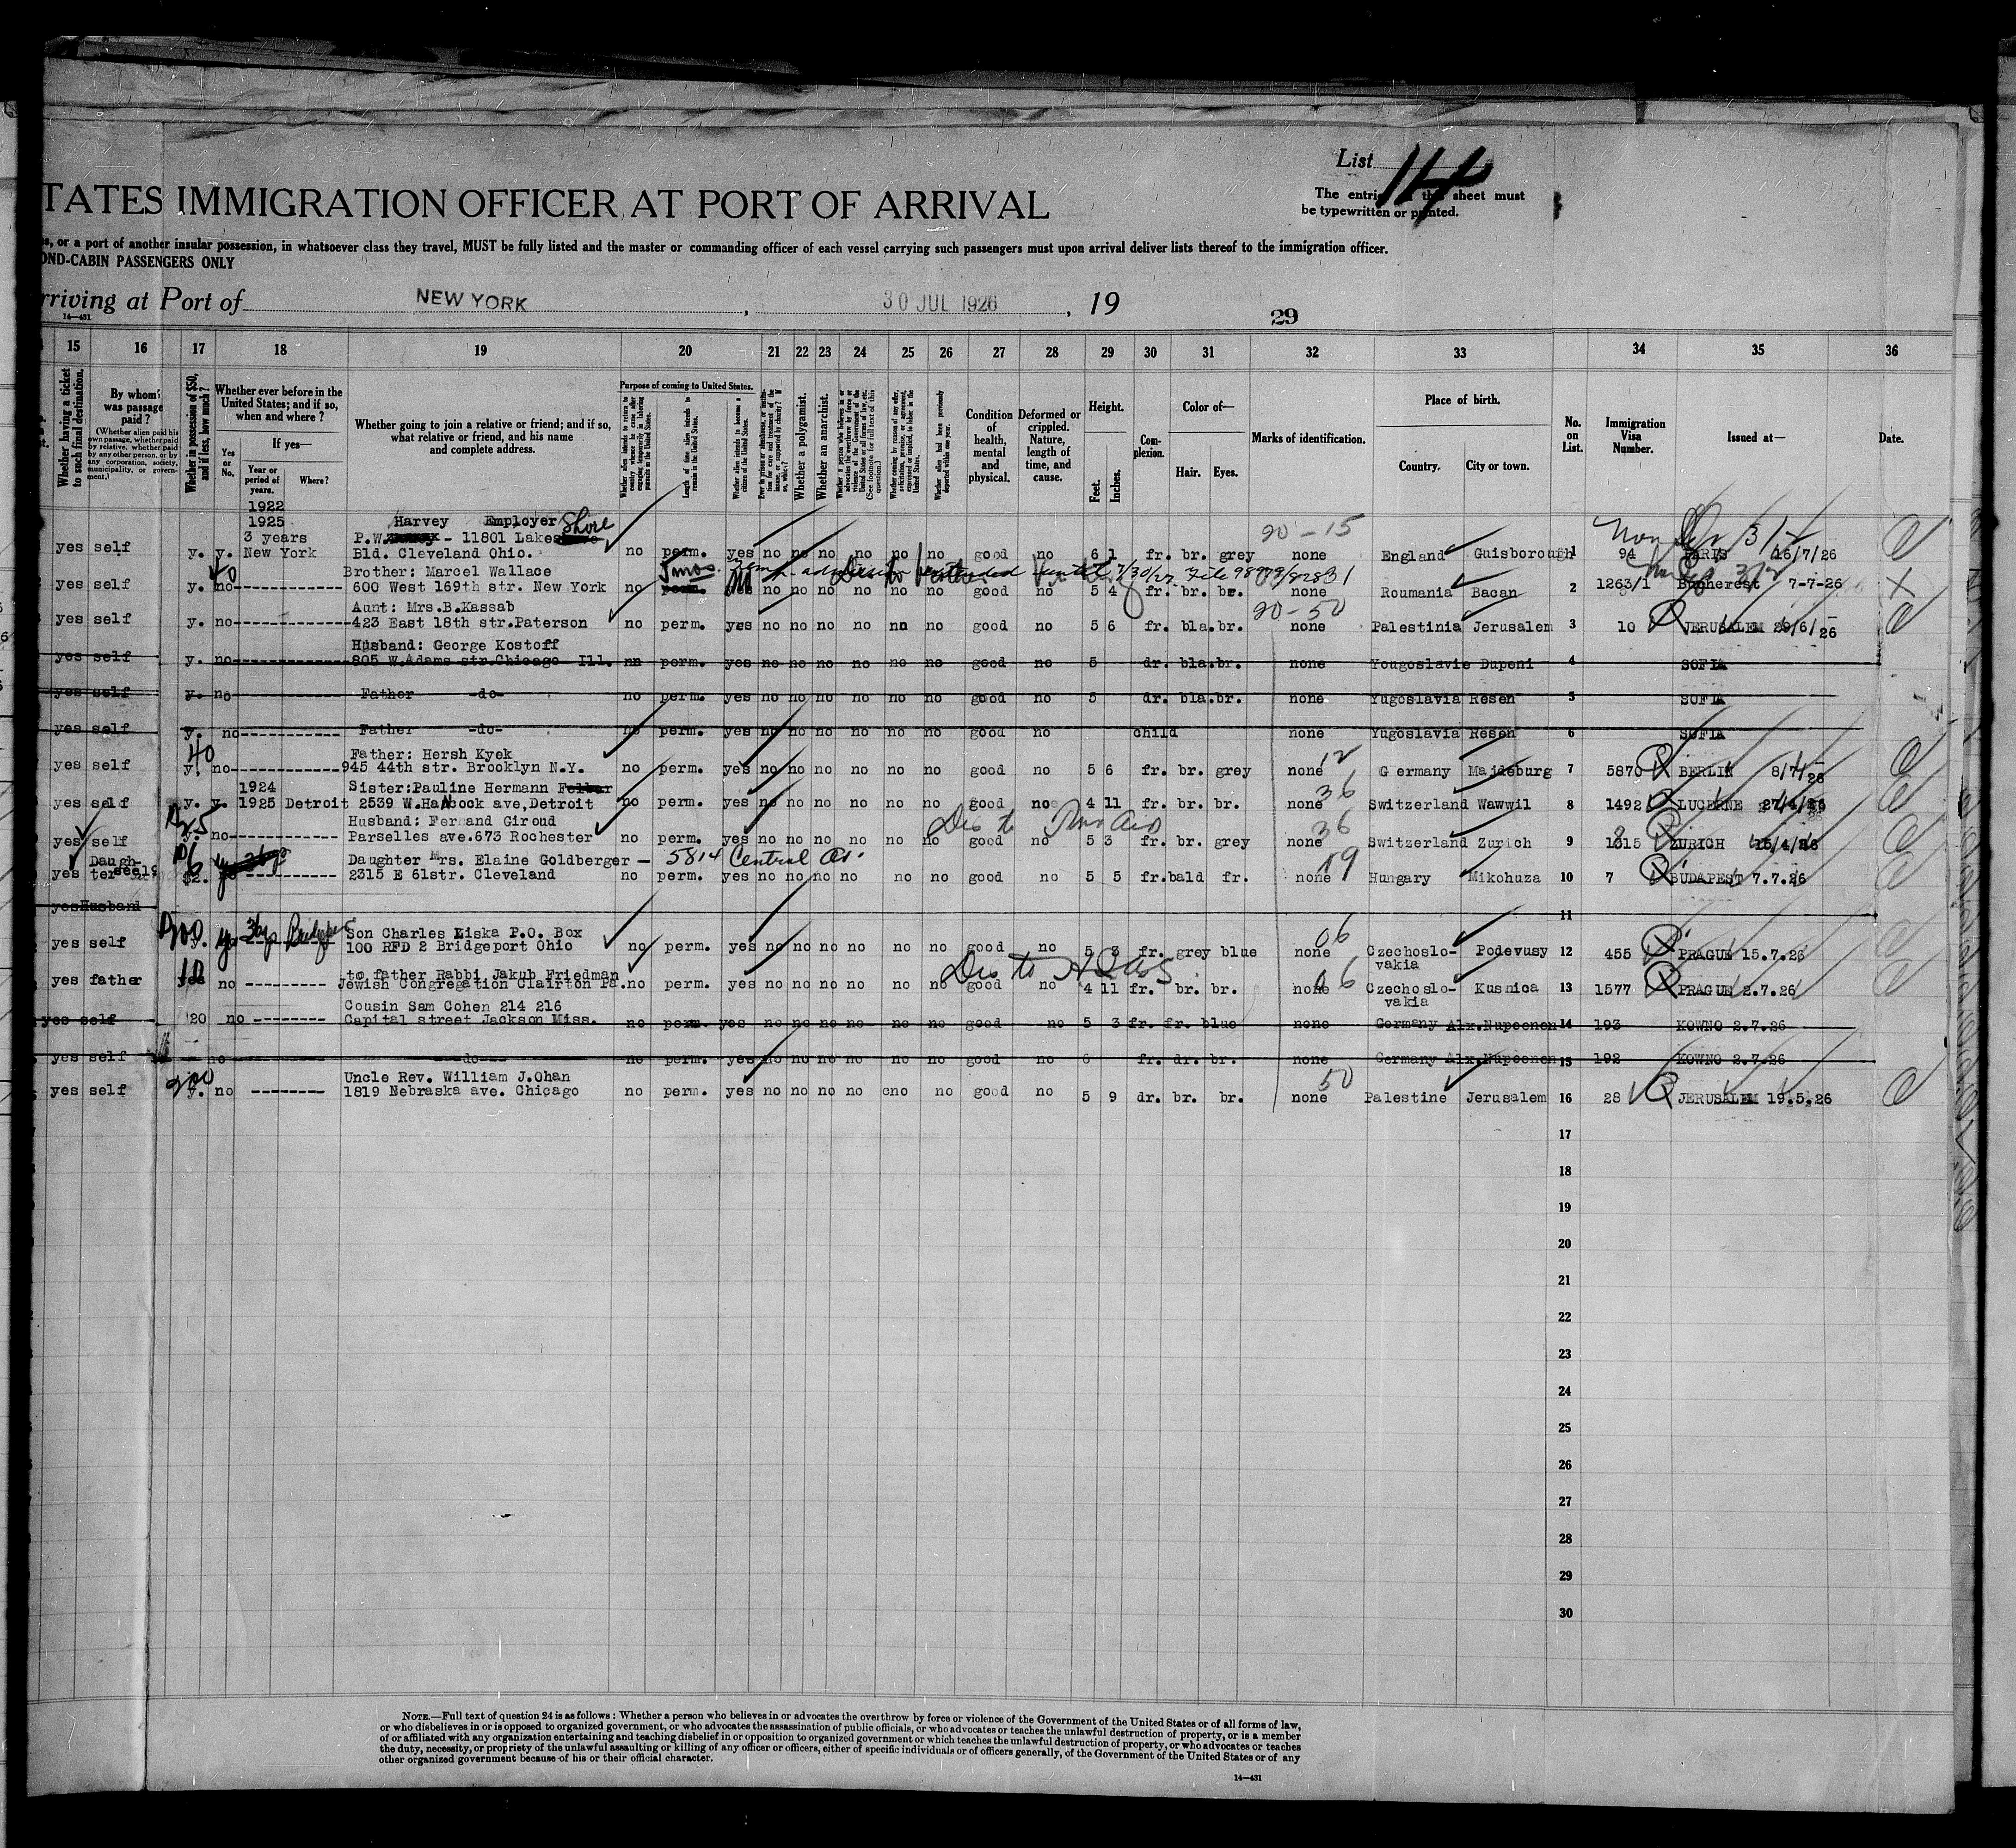 List 14
The entries this sheet must
be typewritten or printed.
TATES IMMIGRATION OFFICER AT PORT OF ARRIVAL
s, or a port of another insular possession, in whatsoever class they travel, MUST be fully listed and the master or commanding officer of each vessel carrying such passengers must upon arrival deliver lists thereof to the immigration officer.
OND-CABIN PASSENGERS ONLY
rriving at Port of NEW YORK, 30 JUL 1926, 19
14—431
29
15 16 17 18 19 20 21 22 23 24 25 26 27 28 29 30 31 32 33 34 35 36
Whether having a ticket to such final destination.
By whom was passage paid?
(Whether alien paid his own passage, whether paid by relative, whether paid by any other person, or by any corporation, society, municipality, or government.)
Whether in possession of $50, and if less, how much?
Whether ever before in the United States; and if so, when and where?
Yes or No.
If yes—
Year or period of years.
Where?
Whether going to join a relative or friend; and if so, what relative or friend, and his name and complete address.
Purpose of coming to United States.
Length of time alien intends to remain in the United States.
Whether alien intends to become a citizen of the United States.
Whether a polygamist.
Whether an anarchist.
Condition of health, mental and physical.
Deformed or crippled. Nature, length of time, and cause.
Height.
Feet. Inches.
Complexion.
Color of—
Hair. Eyes.
Marks of identification.
Place of birth.
Country. City or town.
No. on List.
Immigration Visa Number.
Issued at—
Date.
1922
1925 Harvey Employer Shore
3 years P.W. - 11801 Lake 20-15 Non
yes self y. y. New York Bld. Cleveland Ohio. no perm. yes no no no no no no good no 6 1 fr. br. grey none England Guisborough 1 94 PARIS 16/7/26
Brother: Marcel Wallace 5 mos. Temp. admission extended until 7/30/27. File
yes self y. no 600 West 169th str. New York no perm. yes no no no no no no good no 5 4 fr. br. br. none Roumania Bacan 2 1263/1 Bucherest 7-7-26 X
Aunt: Mrs.B.Kassab 20-50
yes self y. no 423 East 18th str.Paterson no perm. yes no no no no nn no good no 5 6 fr. bla.br. none Palestinia Jerusalem 3 10 JERUSALEM 29/6/26
Husband: George Kostoff
yes self y. no 805 W.Adams str.Chicago Ill. nn perm. yes no no no no no no good no 5 dr. bla.br. none Yougoslavie Dupeni 4 SOFIA
yes self y. no Father -do- no perm. yes no no no no no no good no 5 dr. bla.br. none Yugoslavia Resen 5 SOFIA
yes self y. no Father -do- no perm. yes no no no no no no good no child none Yugoslavia Resen 6 SOFIA
40 Father: Hersh Kyek 12
yes self y. no 945 44th str. Brooklyn N.Y. no perm. yes no no no no no no good no 5 6 fr. br. grey none Germany Majdeburg 7 5870 BERLIN 8/7/26
1924 Sister:Pauline Hermann 36
yes self y. y. 1925 Detroit 2539 W.Hancock ave,Detroit no perm. yes no no no no no no good no 4 11 fr. br. br. none Switzerland Wawwil 8 1492 LUCERNE 27/4/26
Husband: Fernand Giroud Dis to 36
yes self y. no Parselles ave.673 Rochester no perm. yes no no no no no no good no 5 3 fr. br. grey none Switzerland Zurich 9 1315 ZURICH
Daughter Mrs. Elaine Goldberger - 5814 Central Av. 19
yes Daugh-ter 2315 E 61str. Cleveland no perm. yes no no no no no no good no 5 5 fr.bald fr. none Hungary Mikohuza 10 7 BUDAPEST 7.7.26
yes Husband 11
200 3 Son Charles Liska P.O. Box 06
yes self y. 100 RFD 2 Bridgeport Ohio no perm. yes no no no no no no good no 5 3 fr. grey blue none Czechoslo-vakia Podevusy 12 455 PRAGUE 15.7.26
10 to father Rabbi Jakub Friedman Dis to HIAS 06
yes father yes no Jewish Congregation Clairton Pa. no perm. yes no no no no no no good no 4 11 fr. br. br. none Czechoslo-vakia Kusnica 13 1577 PRAGUE 2.7.26
Cousin Sam Cohen 214 216
yes self 20 no Capital street Jackson Miss. no perm. yes no no no no no no good no 5 3 fr. fr. blue none Germany Alx.Nupeonen 14 193 KOWNO 2.7.26
yes self no -do- no perm. yes no no no no no no good no 6 fr. dr. br. none Germany Alx.Nupeonen 15 192 KOWNO 2.7.26
200 Uncle Rev. William J.Ohan 50
yes self y. no 1819 Nebraska ave. Chicago no perm. yes no no no no ono no good no 5 9 dr. br. br. none Palestine Jerusalem 16 28 JERUSALEM 19.5.26
17
18
19
20
21
22
23
24
25
26
27
28
29
30
NOTE.—Full text of question 24 is as follows: Whether a person who believes in or advocates the overthrow by force or violence of the Government of the United States or of all forms of law,
or who disbelieves in or is opposed to organized government, or who advocates the assassination of public officials, or who advocates or teaches the unlawful destruction of property, or is a member
of or affiliated with any organization entertaining and teaching disbelief in or opposition to organized government or which teaches the unlawful destruction of property, or who advocates or teaches
the duty, necessity, or propriety of the unlawful assaulting or killing of any officer or officers, either of specific individuals or of officers generally, of the Government of the United States or of any
other organized government because of his or their official character.
14—431